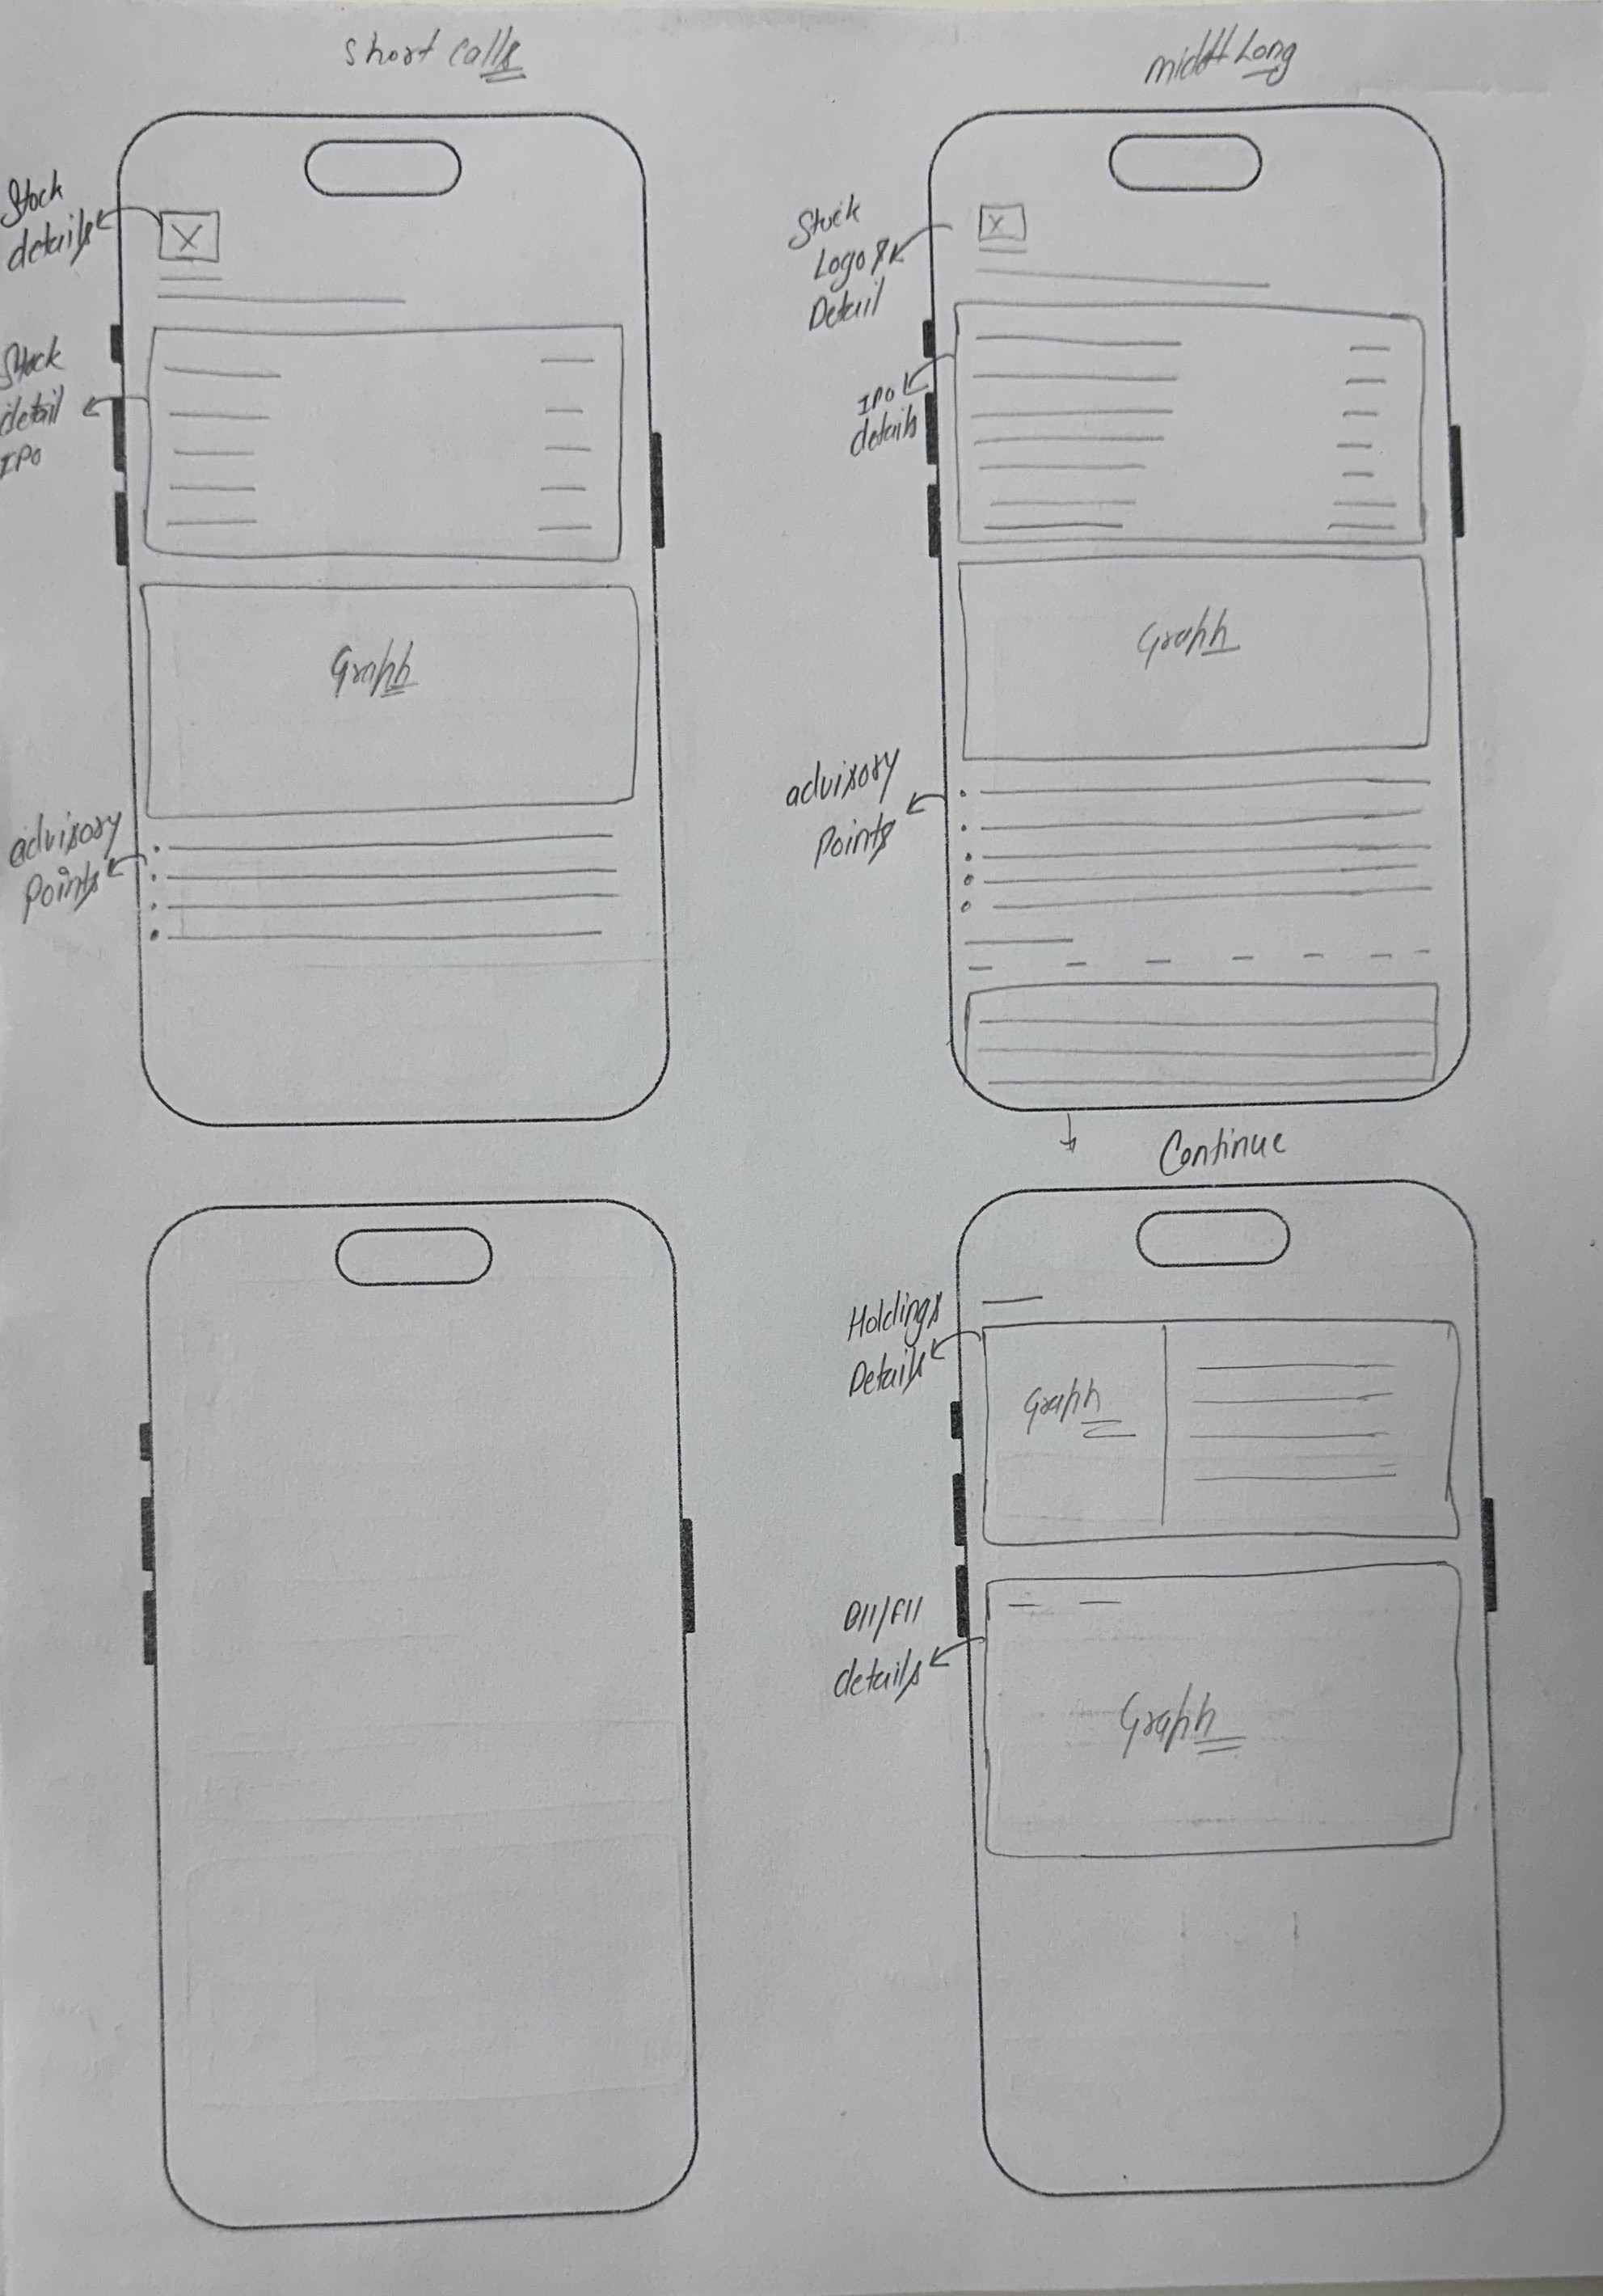 Short calls
Stock
details
Stock
detail
IPO
Graph
advisory
Points
Long
Stock
Logo &
Detail
IPO
details
Graph
advisory
Points
Continue
Holdings
Details
Graph
details
Graph